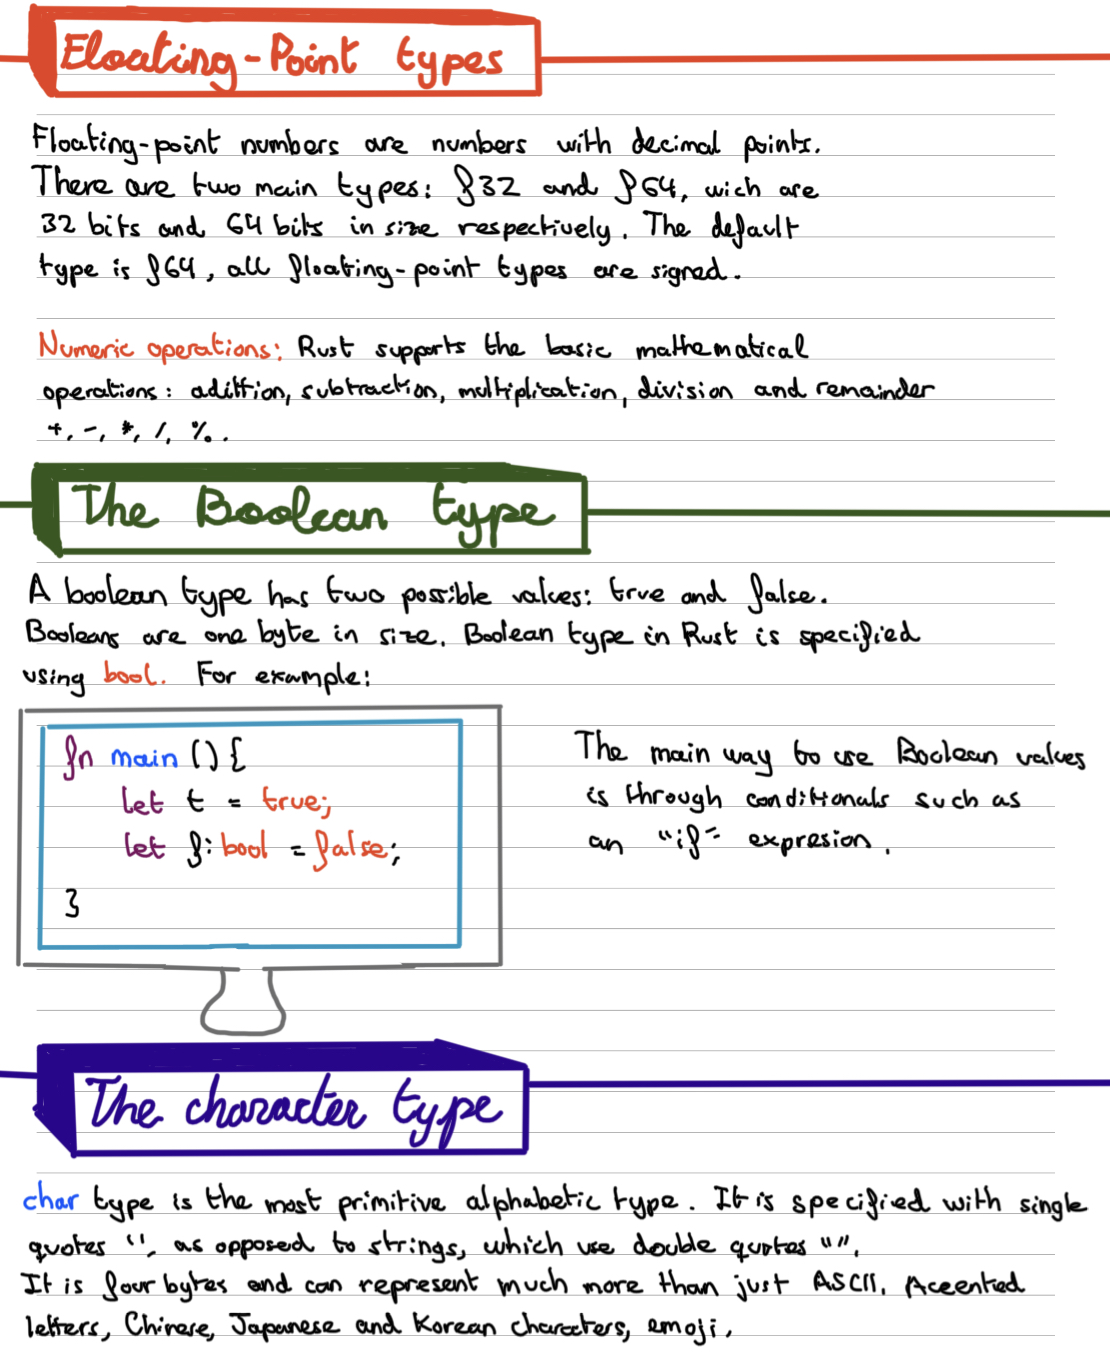 Floating-Point types
Floating-point numbers are numbers with decimal points.
There are two main types: f32 and f64, wich are
32 bits and 64 bits in size respectively. The default
type is f64, all floating-point types are signed.
Numeric operations: Rust supports the basic mathematical
operations: adittion, subtraction, multiplication, division and remainder
+, -, *, /, %.
The Boolean type
A boolean type has two possible values: true and false.
Booleans are one byte in size. Boolean type in Rust is specified
using bool. For example:
fn main () {
let t = true;
let f: bool = false;
}
The main way to use Boolean values
is through conditionals such as
an "if" expresion.
The character type
char type is the most primitive alphabetic type. It is specified with single
quotes '', as opposed to strings, which use double quotes "".
It is four bytes and can represent much more than just ASCII. Aceented
letters, Chinese, Japanese and Korean characters, emoji.